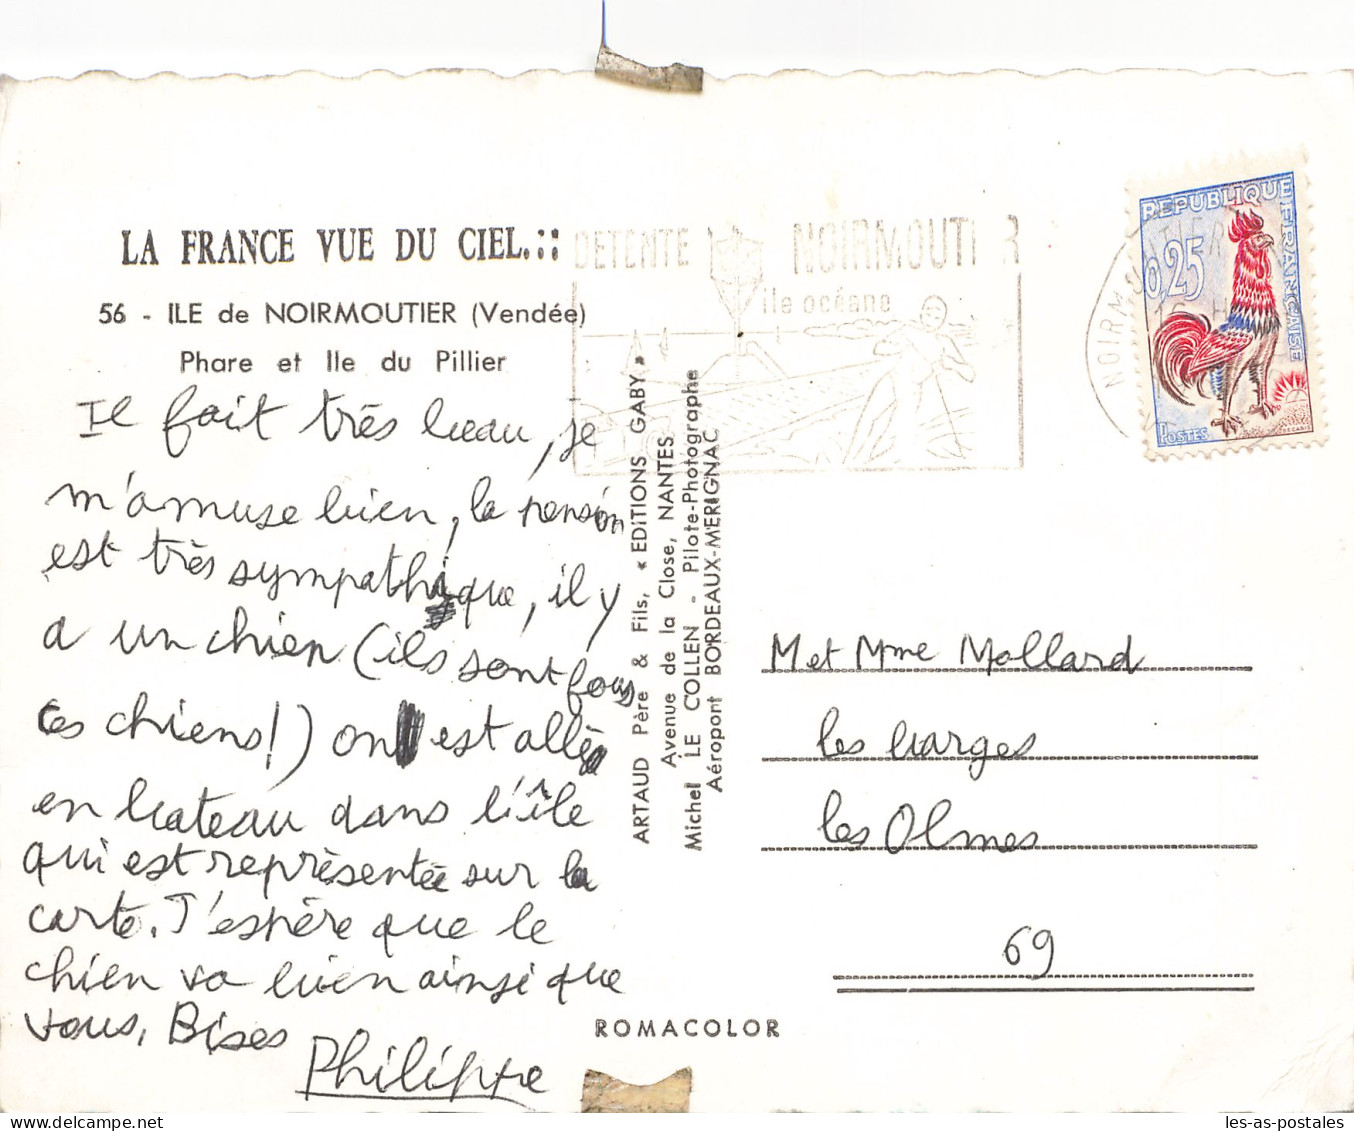 LA FRANCE VUE DU CIEL.::
56 - ILE de NOIRMOUTIER (Vendée)
Phare et Ile du Pillier
Il fait très beau, je
m'amuse bien, la pension
est très sympathique, il y
a un chien (ils sont fous
ces chiens!) on est allé
en bateau dans l'île
qui est représentée sur la
carte. J'espère que le
chien va bien ainsi que
vous. Bises
Philippe
DETENTE NOIRMOUTIER
île océane
ARTAUD Père & Fils, « EDITIONS GABY »
Avenue de la Close, NANTES
Michel LE COLLEN - Pilote-Photographe
Aéroport BORDEAUX-MERIGNAC
REPUBLIQUE FRANÇAISE
0,25
POSTES
DECARIS
NOIRM
M et Mme Mollard
les barges
les Olmes
69
ROMACOLOR
les-as-postales